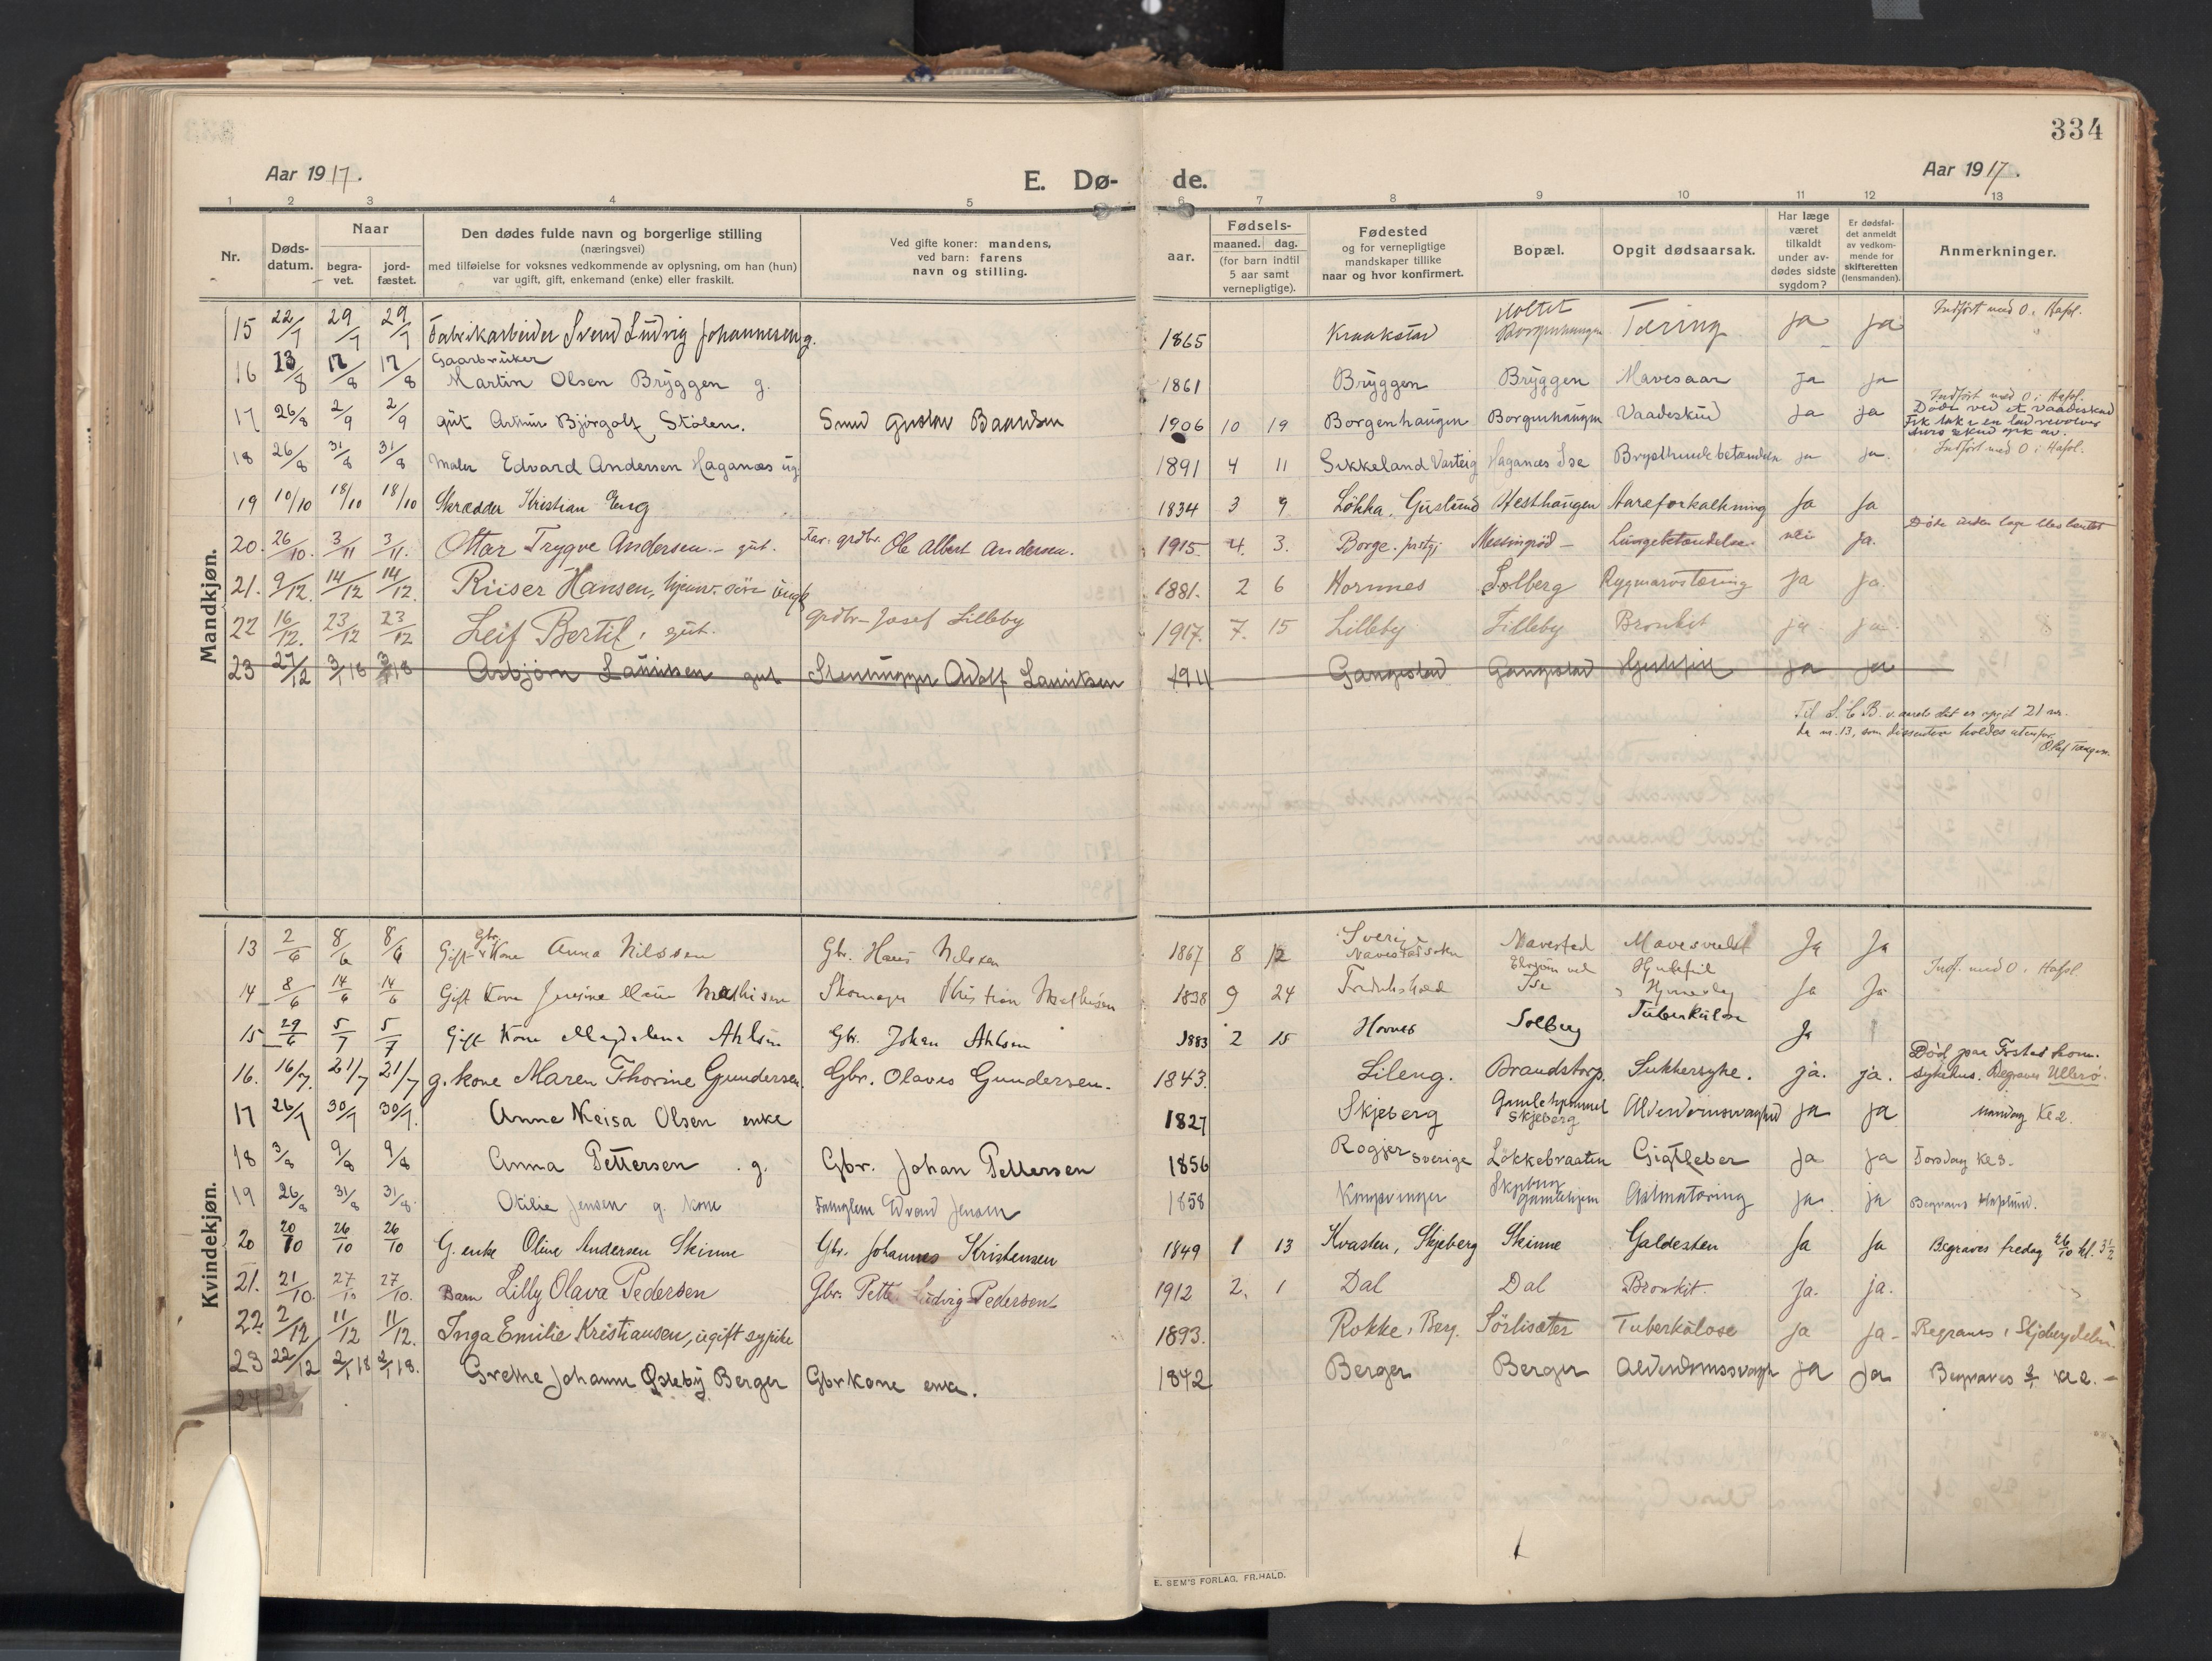 334
Aar 1917.
E. Dø-de.
Aar 1917.
1 2 3 4 5 6 7 8 9 10 11 12 13
Nr.
Døds-datum.
Naar
begra-vet.
jord-fæstet.
Den dødes fulde navn og borgerlige stilling
(næringsvei)
med tilføielse for voksnes vedkommende av oplysning, om han (hun)
var ugift, gift, enkemand (enke) eller fraskilt.
Ved gifte koner: mandens,
ved barn: farens
navn og stilling.
Fødsels-
aar.
maaned. dag.
(for barn indtil
5 aar samt
vernepligtige).
Fødested
og for vernepligtige
mandskaper tillike
naar og hvor konfirmert.
Bopæl.
Opgit dødsaarsak.
Har læge
været
tilkaldt
under av-
dødes sidste
sygdom?
Er dødsfal-
det anmeldt
av vedkom-
mende for
skifteretten
(lensmanden).
Anmerkninger.
Mandkjøn.
15 22/7 29/7 29/7 Fabrikarbeider Svend Ludvig Johannesen g. 1865 Kraakstad Holtet Borgenhaugen Tæring ja ja Indført med O i Hafsl.
16 13/8 17/8 17/8 Gaarbruker Martin Olsen Bryggen g. 1861 Bryggen Bryggen Mavesaar ja ja
17 26/8 2/9 2/9 gut Artur Bjørgolf Stølen. Smed Gustav Baardsen 1906 10 19 Borgenhaugen Borgenhaugen Vaadeskud ja ja Indført med O i Hafsl. Døde ved et vaadeskud
18 26/8 31/8 31/8 Maler Edvard Andersen Haganæs ug. 1891 4 11 Sikkeland Varteig Haganæs Ise Brysthindebetændelse ja ja. Indført med O i Hafsl.
19 10/10 18/10 18/10 Skrædder Kristian Eng 1834 3 9 Løkka, Guslund Hesthaugen Aareforkalkning Ja Ja
20. 26/10. 3/11 3/11. Ottar Trygve Andersen. - gut. Far. grdbr. Ole Albert Andersen. 1915. 4. 3. Borge. prstgj. Messingrød - Lungebetændelse. nei ja. Døde uden læge blev hentet
21. 9/12. 14/12 14/12. Riiser Hansen, hjem. søn ungk. 1881. 2 6 Hornnes Solberg Rygmarvstæring ja ja.
22 16/12. 23/12 23/12 Leif Bertil, gut. grdbr - Josef Lilleby 1917. 7. 15 Lilleby Lilleby Bronkit ja. ja.
23 27/12 3/1 18 3/1 18 Asbjørn Lauritsen gut Stenhugger Adolf Lauritsen 1911 Gangestad Gangestad Hjertefeil ja ja
Til S. C. B. v. aarets slut er opgit 21 nr.
da nr. 13, som dissenter holdes utenfor.
Kvindekjøn.
13 2/6 8/6 8/6 Gift Gbr. Kone Anna Nilssen Gbr. Hans Nilssen 1867 8 12 Sverige Navestad Mavesvulst Ja Ja
14 8/6 14/6 14/6 Gift Kone Mathisen Skomager Kristian Mathisen 1838 9 24 Fredrikshald Ise Hjertefeil Ja Ja Indf. med O i Hafsl.
15 29/6 5/7 5/7 Gift Kone Magdalena Ahlsen Gbr. Johan Ahlsen 1883 2 15 Hornes Solberg Tuberkulose Ja
16. 16/7. 21/7 21/7 g. kone Maren Thorine Gundersen. Gbr. Olaves Gundersen. 1843. Lileng. Brandstorp. Sukkersyke. ja. ja. Død paa Tistedkom. sykehus. Begraves Ullerø.
17 26/7 30/7 30/7. Anne Neisa Olsen enke 1827 Skjeberg Gamlehjemmet Skjeberg Alderdomssvaghed ja ja Mandag Kl 2.
18 3/8 9/8 9/8 Anna Pettersen g. Gbr. Johan Pettersen 1856 Sverige Løkkebraaten Gigtfeber ja ja Torsdag kl 3.
19 26/8 31/8 31/8. Otilie Jensen g. kone Edvard Jensen 1858 Kongsvinger Skjeberg Gamlehjem ja. ja
20 20/10 26/10 26/10 G. enke Oline Andersen Skinne Gbr. Johannes Kristensen 1849 1 13 Kvasten, Skjeberg Skinne Galdesten Ja Ja Begraves fredag 26/10 kl. 3 1/2
21. 21/10. 27/10 27/10. Barn Lilly Olava Pedersen Gbr. Petter Ludvig Pedersen 1912 2. 1 Dal Dal Bronkit. Ja. ja.
22. 2/12 11/12 11/12. Inga Emilie Kristiansen, ugift sypike 1893. Rokke, Berg. Sørlisæter Tuberkulose ja ja - Begraves i Skjeberg
23 22/12 2/1 18 2/1 18. Grethe Johanne Østeby Berger Gbrkone enke. 1842 Berger Berger Alderdomssvagh ja ja Begraves 2/1 kl 2. -
24
E. SEM'S FORLAG, FR.HALD.